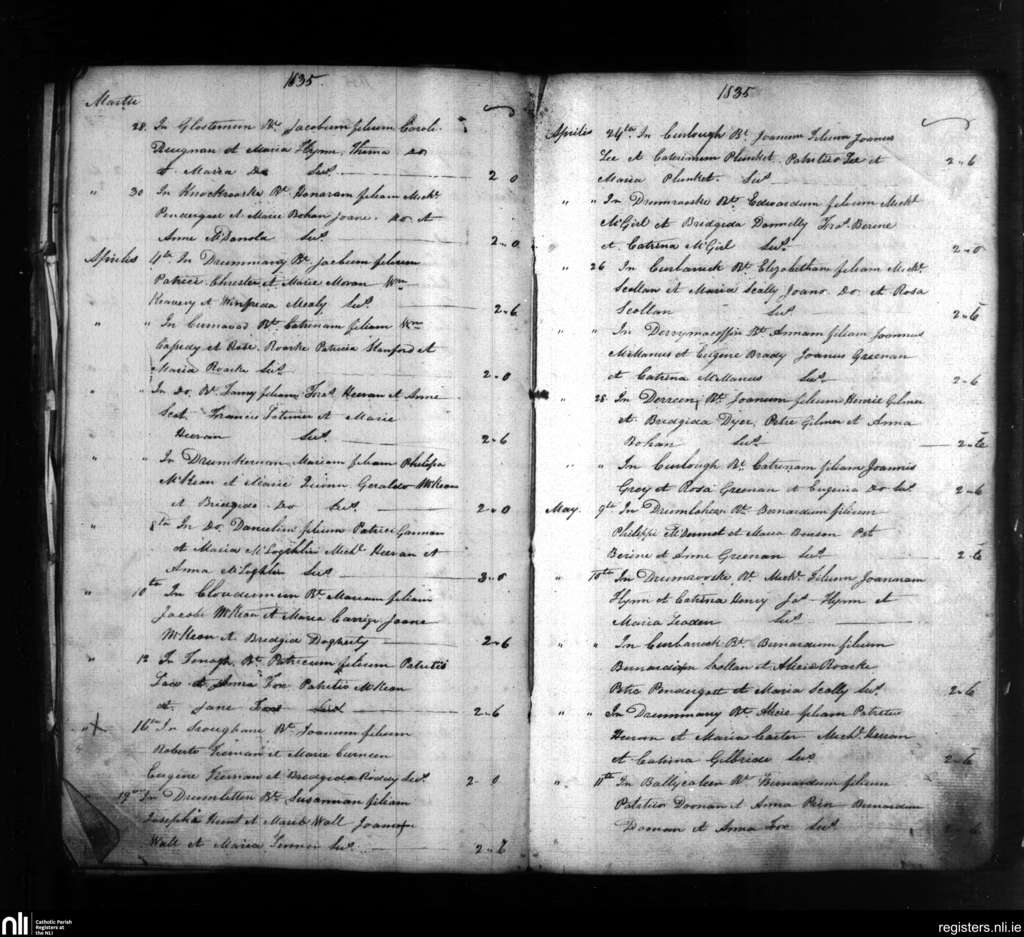 1835
Martii
28. In Glosternun Bt. Jacobum filium Caroli
Duignan et Maria Flynn, Thoma do
et Maria Do Sus. 2 0
" 30 In Knockroosk Bt. Honaram filiam Michl.
Pendergast et Marie Bohan Joane. Do. et
Anne McDanola Sus. 2-0
Aprilis 4th In Drummany Bt. Jacbum filium
Patrici et Marie Moran Wm
Kearney et Winfreda Mealy Sus. 2-6
" " In Bt. Catrenam filiam Wm
Cassedy et Rose Roarke Patricia Stanford et
Maria Roarke Sus. 2-0
" " In Do. Bt. filiam Fras. Heeran et Anne
Scot Francis et Marie
Heeran Sus. 2-6
" " In Drumkernan Mariam filiam Philipa
McKean et Marie Quinn Geraldo McKean
et Bridgida Do Sus. 2-0
" 8th In Do. Danielem filium Patrici Gannan
et Maria McLoghlin Michl. Heeran et
Anna McLoghlin Sus. 3-0
" 10th In Cloodumun Bt. Mariam filiam
Jacobi McKean et Maria Carrige Joane
McKean et Bredgid Dogherty 2-6
" 12 In Fenagh Bt. Patricum filium Patritii
Fox et Anna Fox Patritio McKean
et Jane Fox Sus. 2-6
" X 16th In Bt. Joanum filium
Roberti Fernan et Marie Curneen
Eugene Fernan et Bredgida Roddy Sus. 2-0
19th In Drumlitten Bt. Susannan filiam
Josepha Hunt et Marie Wall Joanne
Wall et Maria Lennon Sus. 2-6
1835
Aprilis 24th In Curlough Bt. Joanum Filium Joanus
Lee et Caterinum Plunket. Patritio Lee et
Maria Plunket. Sus. 2-6
" " In Drumrooske Bt. Edwardum filium Michl.
McGirl et Bridgida Donnelly Fras. Berine
et Catrina McGirl Sus. 2-0
" 26 In Curbaruck Bt. Elizabetham filiam Michl.
Scollan et Maria Scally Joano. Do. et Rosa
Scollan Sus. 2-6
" " In Derrymacoffin Bt. Annam filiam Joannus
McManus et Eugene Brady Joanus Greenan
et Catrina McManus Sus. 2-6
" 28 In Derreen, Bt. Joanum filium Henrie Gilmer
et Bredgida Dyer, Petre Gilmer et Anna
Bohan Sus. 2-6
" " In Curlough Bt. Catrenam filiam Joannis
Grey et Rosa Greenan et Eugenia Do Sus. 2-6
May. 9th In Drumlahen Bt. Bernardum filium
Philippi McDermot et Maria Pat
Berine et Anne Greenan Sus. 2-6
" 10th In Drumrooske. Bt. Michl. Filium Joannam
Flynn et Catrina Henry Jas. Flynn et
Maria Leaden Sus.
" " In Curbaruck Bt. Bernardum filium
Bernardum Scollan et Alicia Roarke
Pendergast et Maria Scally Sus. 2-6
" " In Drummany Bt. Alice filiam Patritii
Heeran et Maria Carter Michl. Heeran
et Catrina Gilbride Sus. 2-6
" 11th In Ballycaleen Bt. Bernardum filium
Patritio Doonan et Anna Bernardum
Doonan et Anna Fox Sus.
nli
Catholic Parish
Registers at
the NLI
registers.nli.ie